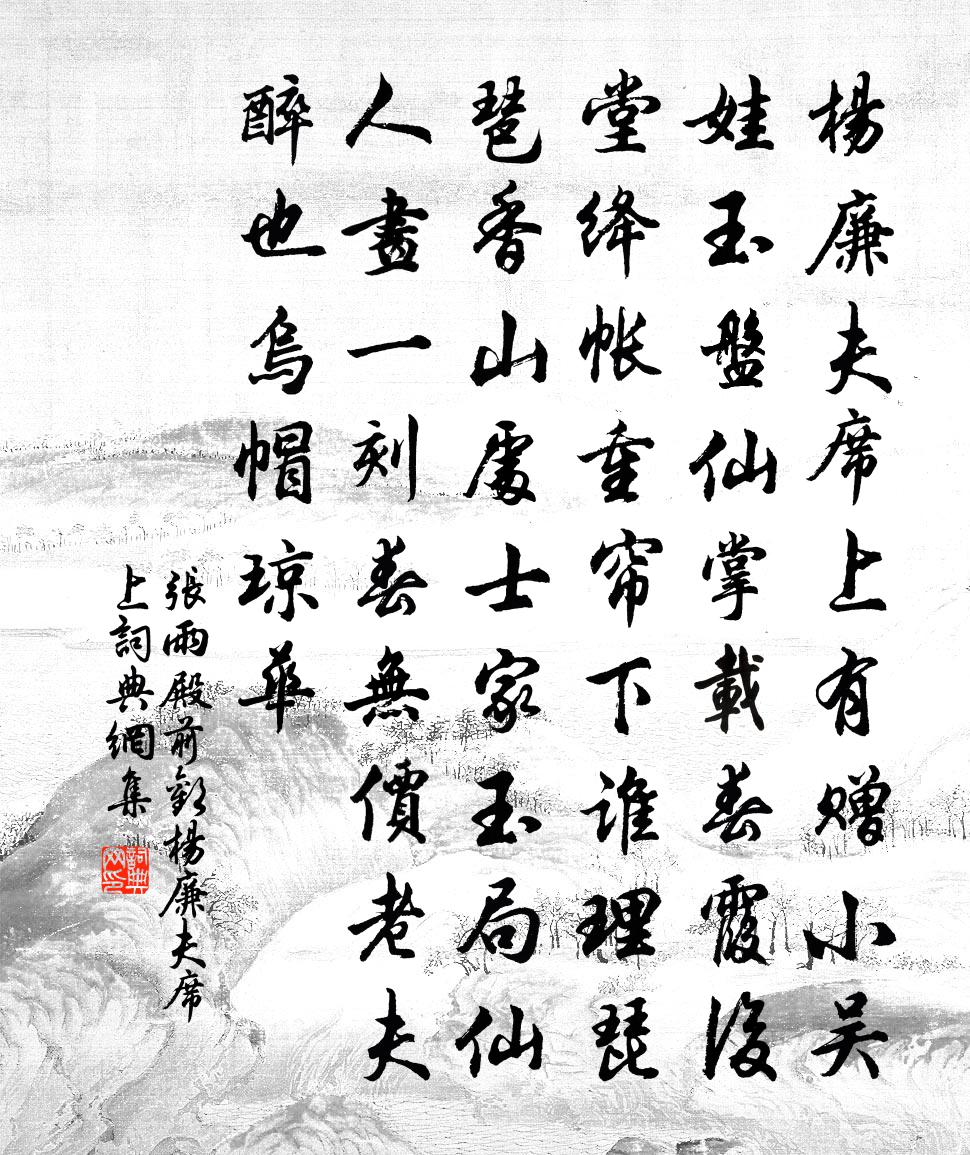 楊廉夫席上有贈小吴
娃玉盤仙掌載春霞後
堂絳帳重帘下誰理琵
琶香山處士家玉局仙
人畫一刻春無價老夫
醉也烏帽琼華
張雨殿前歡楊廉夫席
上詞典網集
詞典網印